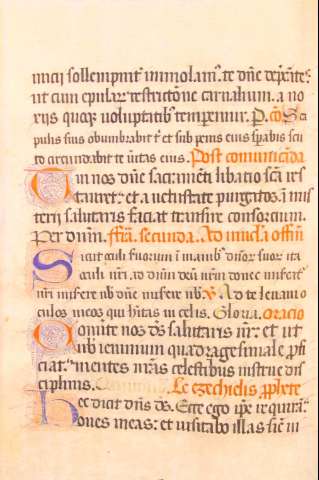 inicii sollempnit' immolam'. te dñe dep̃cãtes:
ut cum epular' restrictõne carnalium. a no
xijs quoq; voluptatib' temperem'. P. cõ Sca
pulis suis obumbrabit t' et sub penis eius sp̃abis scu
to circundabit te ũitas eius. Post comunicõa
Tui nos dñe sacramẽti libatio sc̃a res
tauret: et a uetustate purgatos. in mis
terij salutaris faciat transire consorcium.
Per dnm. fr̃a. secunda. Ad missa offm̃
Sicut oculi seruorum ĩ manib' dñor' suor' ita
oculi nr̃i. ad dñm dm̃ nr̃m donec misereat'
nr̃i misere nb̃ dñe misere nb̃. V Ad te leuaui o
culos meos qui hĩtas in celis. Gloria. oracio
Conuerte nos d's salutaris nr̃: et ut
nob' ieiunium quadragesimale p̃fi
ciat. mentes nr̃as celestibus instrue dis
ciplinis. Le ezechielis p̃phete
Hec dicit dñs d's. Ecce ego ip̃e requirã
oues meas: et uisitabo illas sic̃ ui